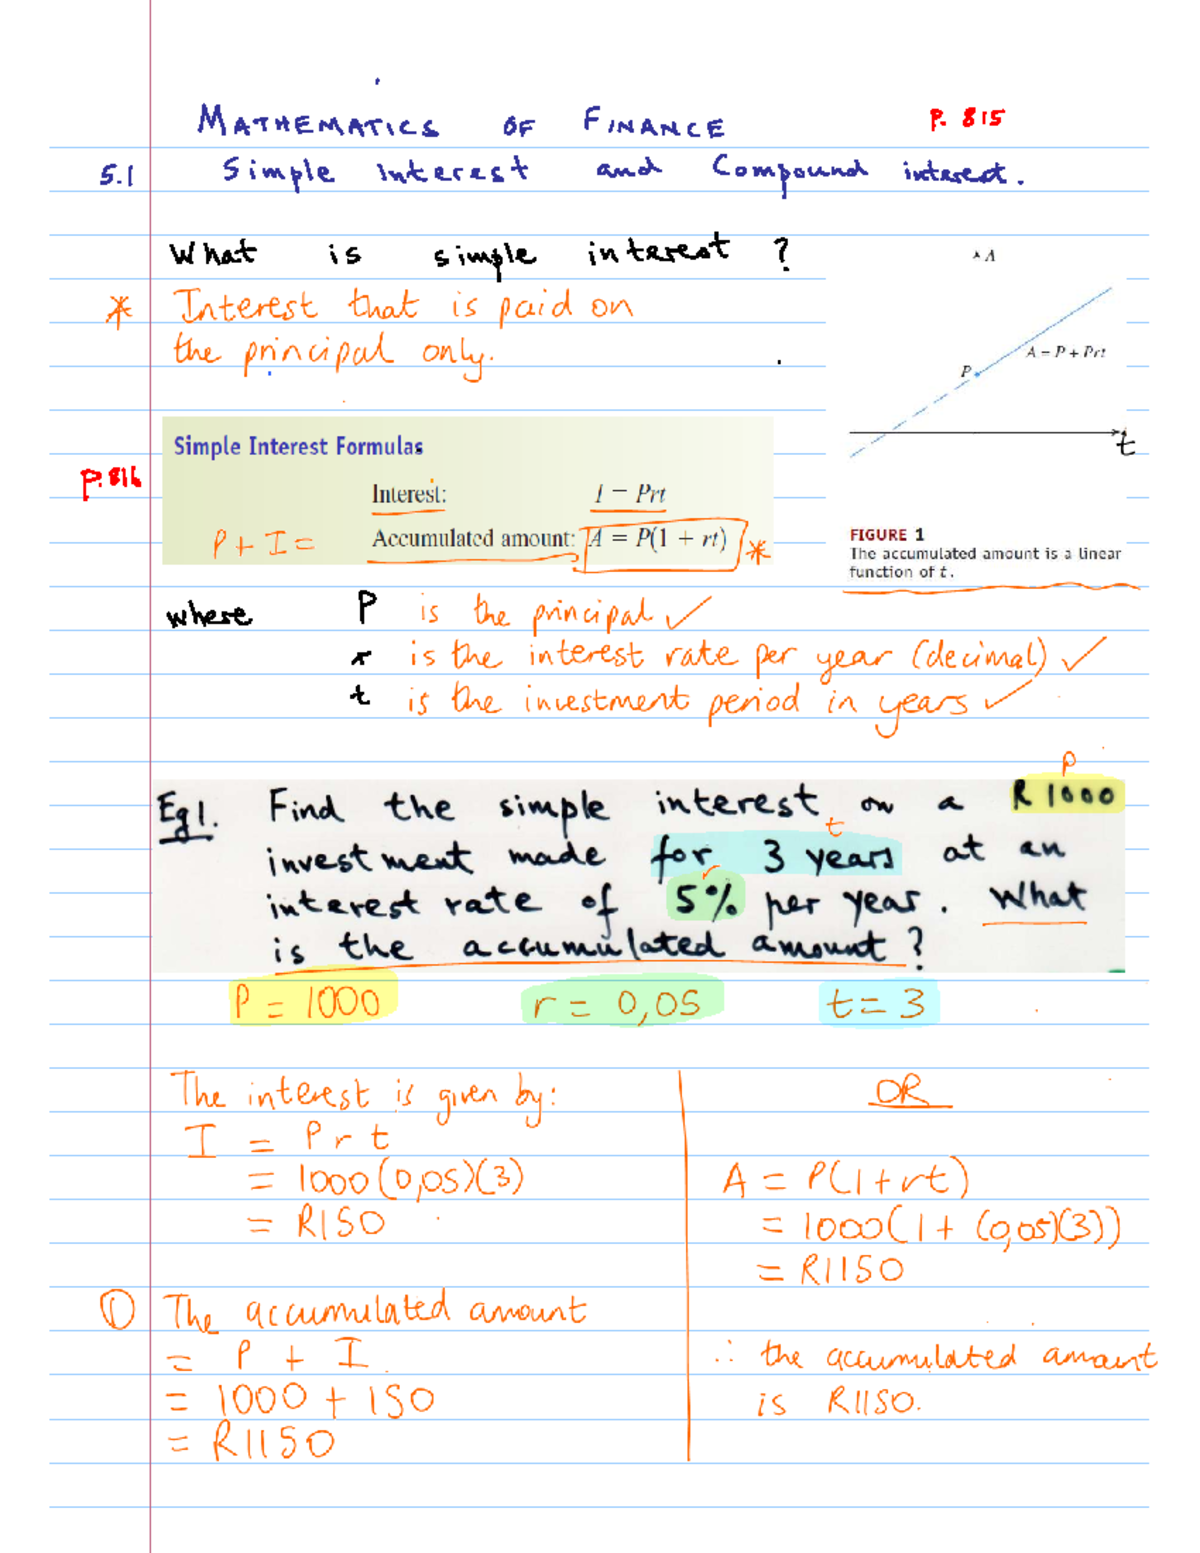 MATHEMATICS OF FINANCE P. 815
5.1 Simple Interest and Compound interest.
What is simple interest ?
* Interest that is paid on
the principal only.
A
A = P + Prt
P
t
FIGURE 1
The accumulated amount is a linear
function of t.
Simple Interest Formulas
P.816
Interest: I = Prt
P + I = Accumulated amount: A = P(1 + rt) *
where P is the principal ✓
r is the interest rate per year (decimal) ✓
t is the investment period in years ✓
P
Eg1. Find the simple interest on a R1000
t
investment made for 3 years at an
r
interest rate of 5% per year. What
is the accumulated amount ?
P = 1000 r = 0,05 t = 3
The interest is given by:
I = Prt
= 1000(0,05)(3)
= R150
① The accumulated amount
= P + I
= 1000 + 150
= R1150
OR
A = P(1+rt)
= 1000(1 + (0,05)(3))
= R1150
∴ the accumulated amount
is R1150.